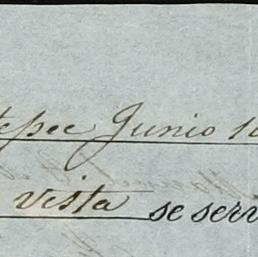 tepec Junio 1
vista se serv